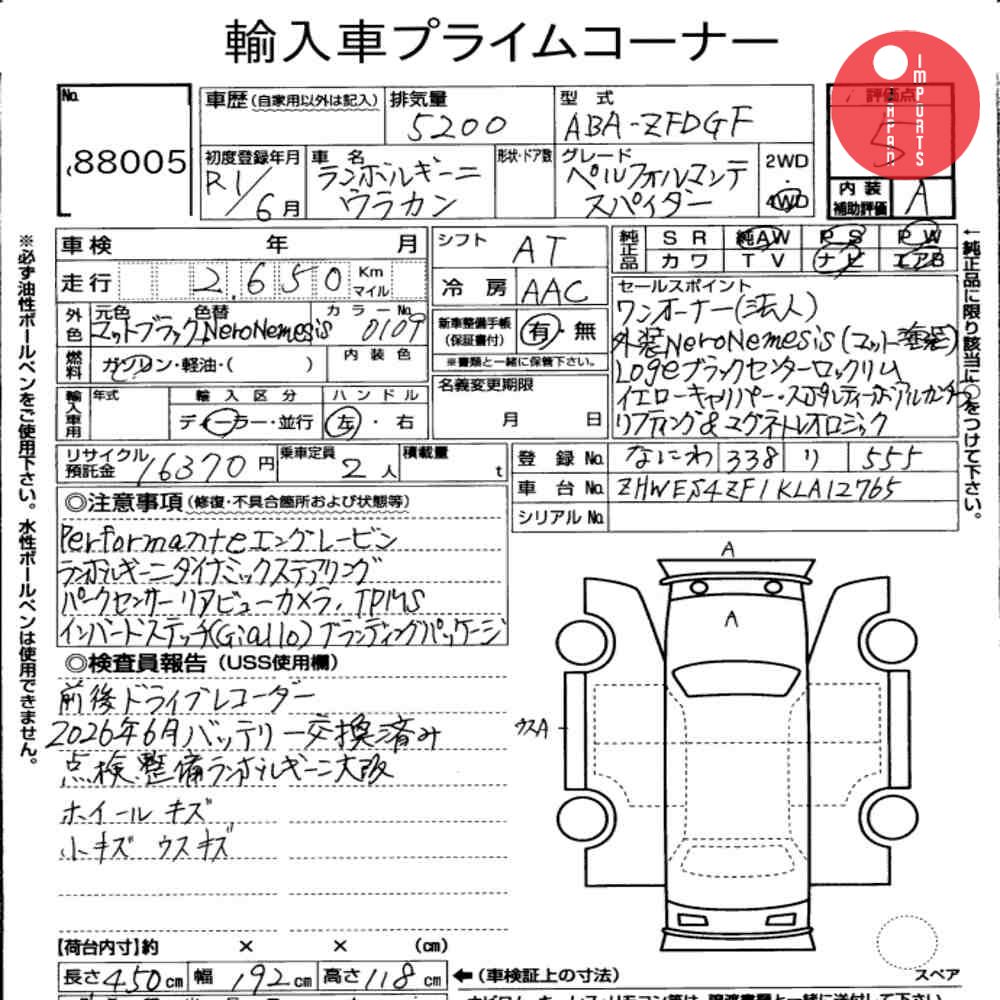 輸入車プライムコーナー
JAPAN IMPORTS
No. 88005
車歴 (自家用以外は記入)
排気量 5200
型式 ABA-ZFDGF
評価点 5
初度登録年月 R1/6月
車名 ランボルギーニ ウラカン
形状・ドア数
グレード ペルフォルマンテ スパイダー
2WD・4WD
内装補助評価 A
車検 年 月
走行 2,650 Km マイル
シフト AT
冷房 AAC
純正品 SR 純AW PS PW
カワ TV ナビ エアB
外色 元色 マットブラック 色替 NeroNemesis カラーNo. 0109
燃料 ガソリン・軽油・( )
内装色
新車整備手帳(保証書付) 有・無
※書類と一緒に保管下さい。
名義変更期限 月 日
セールスポイント
ワンオーナー(法人)
外装NeroNemesis(マット塗装)
Logeブラックセンターロックリム
イエローキャリパー・スポルティーボアルカンターラ
リフティング&マグネトレオロジック
輸入車用 年式 輸入区分 ディーラー・並行 ハンドル 左・右
リサイクル預託金 16370円
乗車定員 2人
積載量 t
登録No. なにわ 338 り 555
車台No. ZHWES4ZF1KLA12765
シリアルNo.
◎注意事項 (修復・不具合箇所および状態等)
Performanteエングレービン
ランボルギーニダイナミックステアリング
パークセンサー リアビューカメラ、TPMS
インバードステッチ(Giallo)ブランディングパッケージ
◎検査員報告 (USS使用欄)
前後ドライブレコーダー
2026年6月バッテリー交換済み
点検整備ランボルギーニ大阪
ホイールキズ
小キズ ウスキズ
A
A
ウスA
【荷台内寸】約 × × (cm)
長さ 450cm 幅 192cm 高さ 118cm
←(車検証上の寸法)
スペア
※必ず油性ボールペンをご使用下さい。水性ボールペンは使用できません。
←純正品に限り該当に○をつけて下さい。